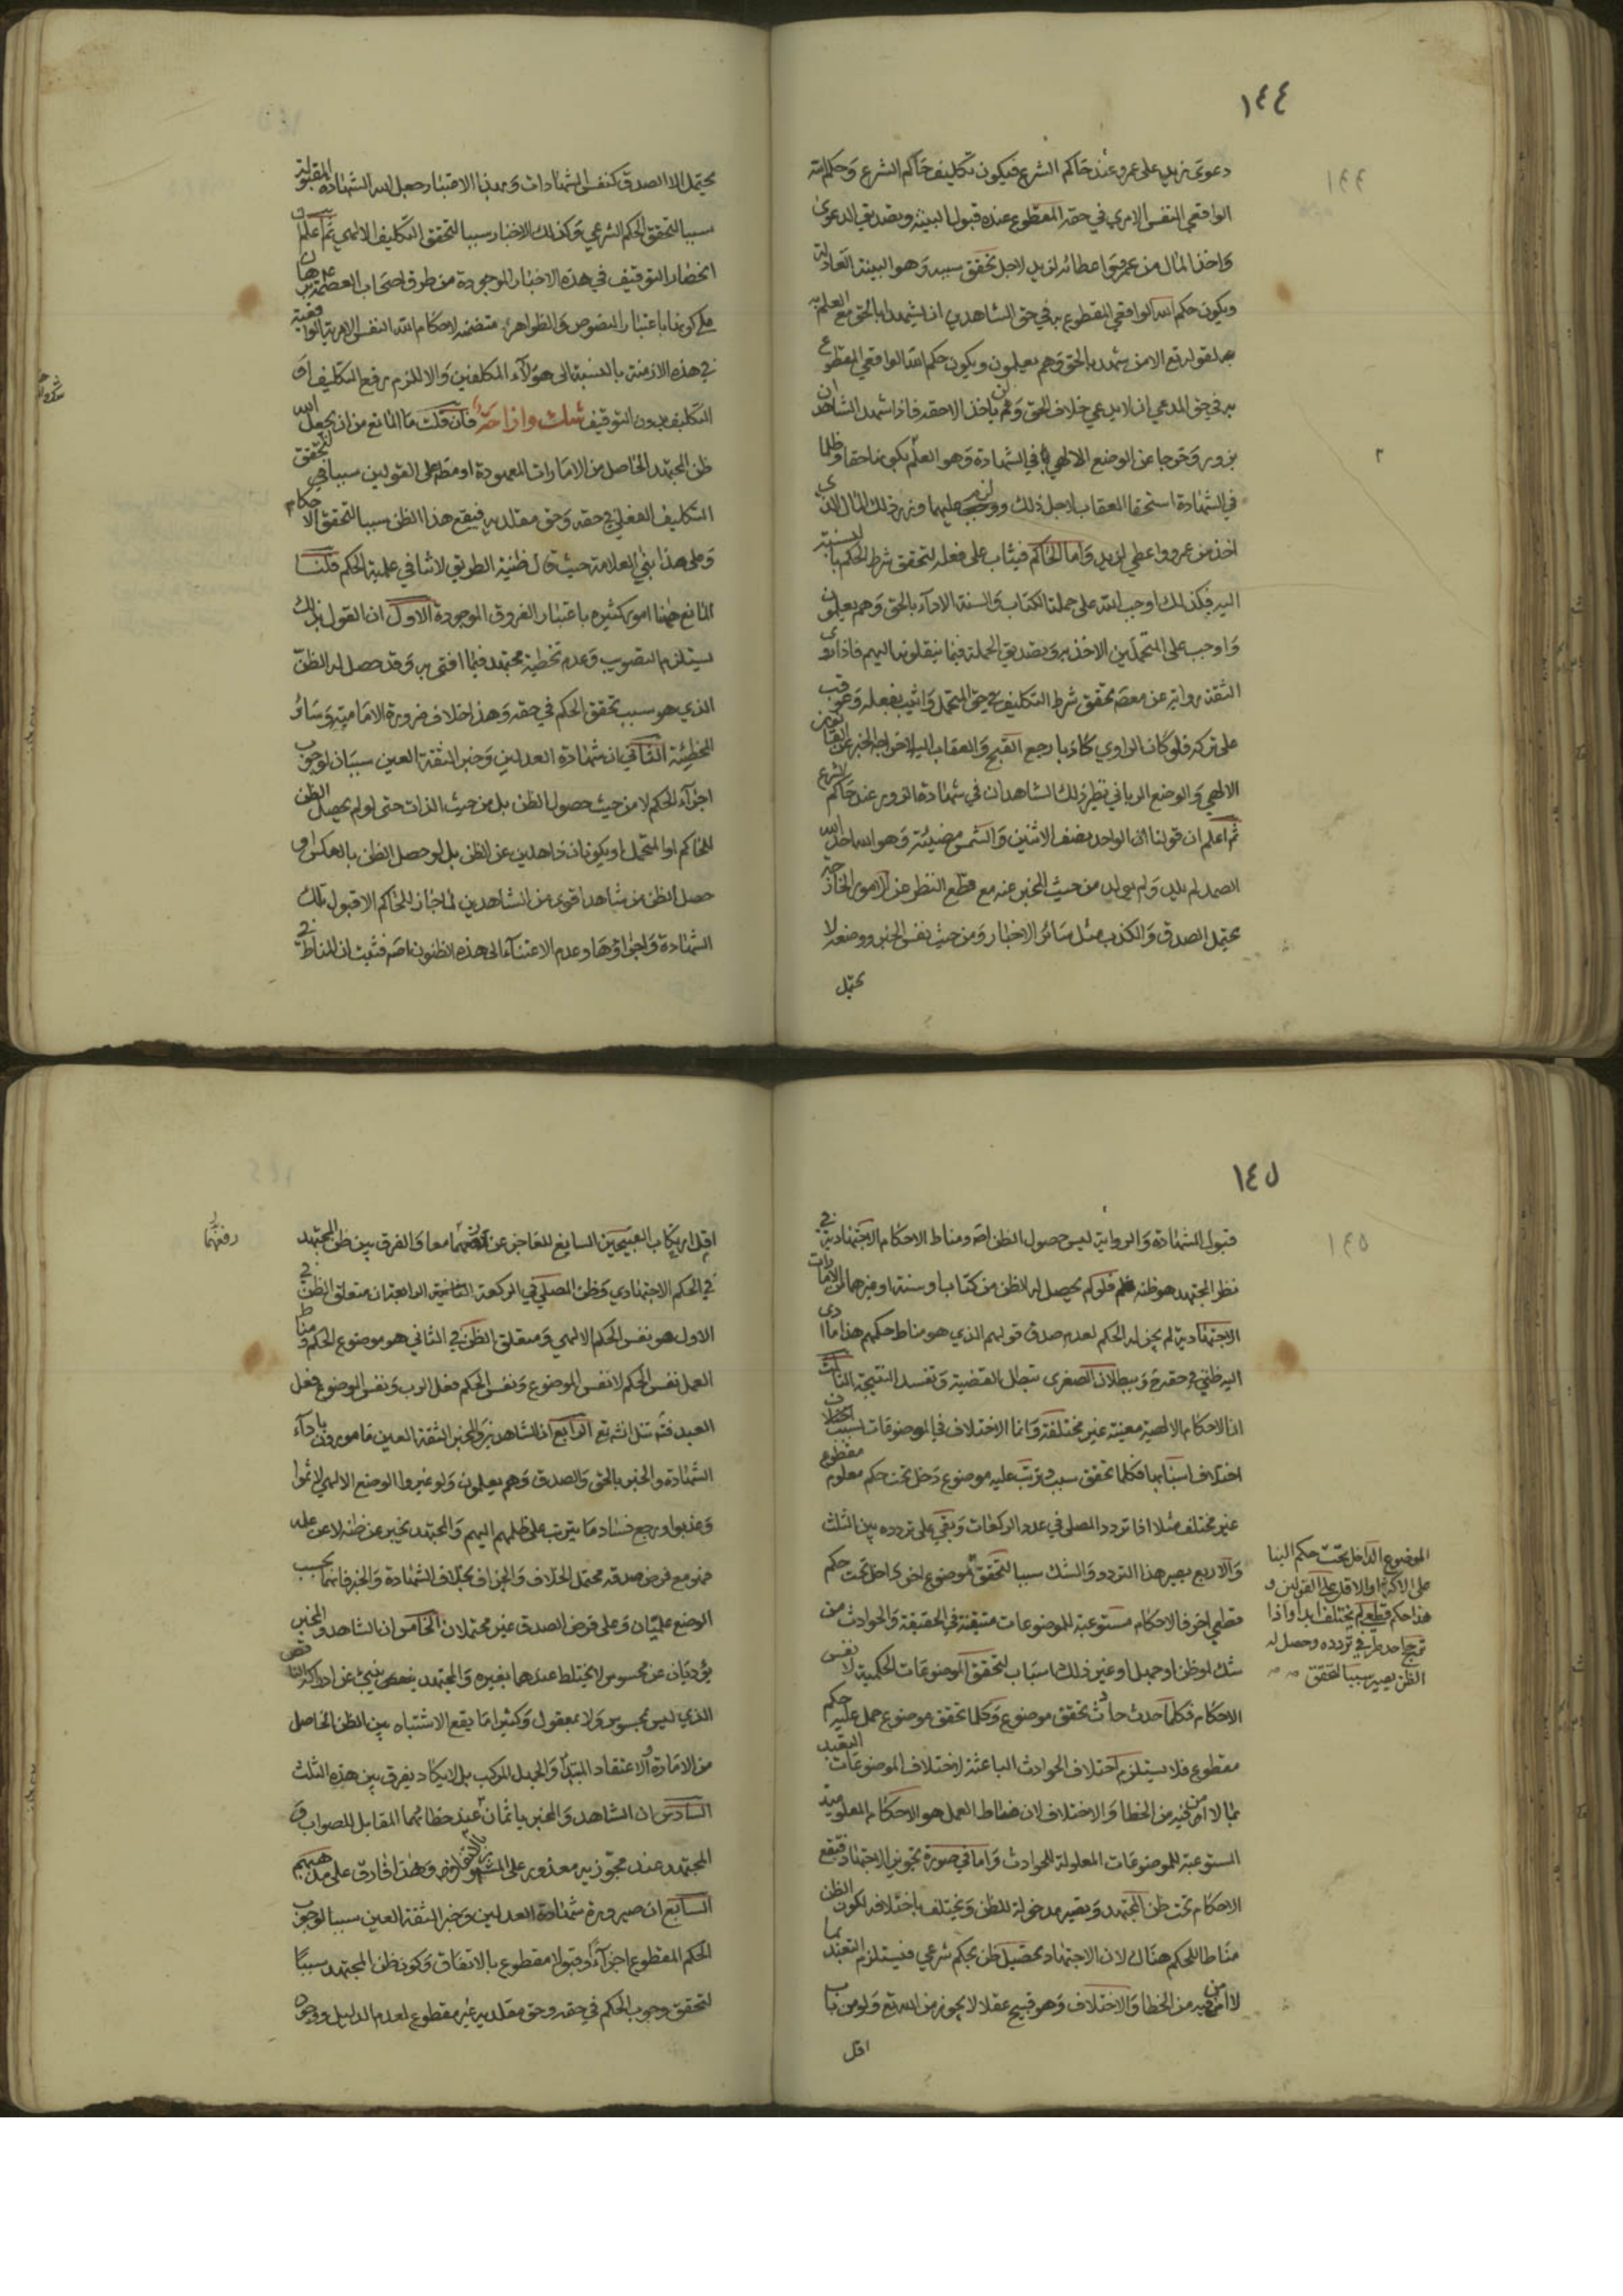 ١٤٤
دعوى زيد على عمرو عند حاكم الشرع فيكون تكليف حاكم الشرع وحكم الله
الواقعي النفس الامري في حقه المقطوع عنده قبول البينة وتصديق الدعوى
واخذ المال من عمرو واعطائه لزيد لاجل تحقق سببه وهو البينة العادلة
ويكون حكم الله الواقعي المقطوع به في حق الشاهدين ان يشهدا بالحق مع العلم به
لقوله تع الا من شهد بالحق وهم يعلمون ويكون حكم الله الواقعي المقطوع
به في حق المدعي ان لا يدعي خلاف الحق وان لم ياخذ الا حقه فاذا شهد الشاهدان
بزور وخرجا عن الوضع الالهي في الشهادة وهو العلم بكونها حقا وظلما
في الشهادة استحقا العقاب لاجل ذلك ووجب عليهما وزر ذلك المال الذي
اخذ من عمرو واعطي لزيد واما الحاكم فيثاب على فعله لتحقق شرط الحكم بالنسبة
اليه فكذلك اوجب الله على حملة الكتاب والسنة الاداء بالحق وهم يعلمون
واوجب على المتحملين الاخذ به وتصديق الحملة فيما ينقلونها اليهم فاذا روى
الثقة رواية عن معصوم تحقق شرط التكليف في حق المتحمل واثيب بفعله وعوقب
على تركه فلو كان الراوي كاذبا رجع القبح والعقاب اليه لاخراجه الخبر عن القانون
الالهي والوضع الرباني نظير ذلك الشاهدان في شهادة الزور عند حاكم الشرع
ثم اعلم ان قولنا ان الواحد نصف الاثنين والشمس مضيئة وهو الله احد الله
الصمد لم يلد ولم يولد من حيث الخبر عنه مع قطع النظر عن الامور الخارجة
يحتمل الصدق والكذب مثل سائر الاخبار ومن حيث نفس الخبر ووضعه لا
يحتمل
يحتمل الا الصدق كنفس الشهادات وبهذا الاعتبار جعل الله الشهادة المقبولة
سببا لتحقق الحكم الشرعي وكذلك الاخبار سببا لتحقق التكليف الالهي ثم اعلم ان
انحصار التوقيف في هذه الاخبار الموجودة من طرق اصحاب العصمة برهان
على كونها باعتبار النصوص والظواهر متضمنة لاحكام الله النفس الامرية الواقعية
في هذه الازمنة بالنسبة الى هؤلاء المكلفين والا للزم رفع التكليف او
التكليف بدون التوقيف شك وازاحة فان قلت ما المانع من ان يجعل الله
ظن المجتهد الحاصل من الامارات المعهودة او مطلقا على القولين سببا في تحقق
التكليف الفعلي في حقه وحق مقلديه فيقع هذا الظن سببا لتحقق الاحكام
وعلى هذا بنى العلامة حيث قال ظنية الطريق لا تنافي علمية الحكم قلنا
المانع هنا امور كثيرة باعتبار الفروق الموجودة الاول ان القول بذلك
يستلزم التصويب وعدم تخطية مجتهد فيما افتى به وقد حصل له الظن
الذي هو سبب تحقق الحكم في حقه وهذا خلاف ضرورة الامامية وسائر
المخطئة الثاني ان شهادة العدلين وخبر الثقة العين سببان لوجوب
اجراء الحكم لا من حيث حصول الظن بل من حيث الذات حتى لو لم يحصل الظن
للحاكم او المتحمل او يكونان ذاهلين عن الظن بل لو حصل الظن بالعكس او
حصل الظن من شاهد اقوى من الشاهدين لما جاز للحاكم الا قبول تلك
الشهادة واجراؤها وعدم الاعتناء الى هذه الظنون اصلا فثبت ان المناط في
١٤٥
قبول الشهادة والرواية ليس حصول الظن اصلا ومناط الاحكام الاجتهادية في
نظر المجتهد هو ظنه فلو لم يحصل له الظن من كتاب او سنة او غيرهما من الامارات
الاجتهادية لم يجز له الحكم لعدم صدق قولهم الذي هو مناط حكمهم هذا ما ادى
اليه ظني في حقه وببطلان الصغرى تبطل القضية وتفسد النتيجة الثالث
ان الاحكام الالهية معينة غير مختلفة وانما الاختلاف في الموضوعات بسبب اختلاف
اختلاف اسبابها فكلما تحقق سبب وترتب عليه موضوع دخل تحت حكم معلوم مقطوع
غير مختلف مثلا اذا تردد المصلي في عدد الركعات وبقي على تردده بين الثلث
والاربع يصير هذا التردد والشك سببا لتحقق موضوع اخر داخل تحت حكم
قطعي اخر فالاحكام مستوعبة للموضوعات متيقنة في الحقيقة والحوادث من
شك او ظن او جهل او غير ذلك اسباب لتحقق الموضوعات الحكمية لا نفس
الاحكام فكلما حدث حادث تحقق موضوع وكلما تحقق موضوع حمل عليه حكم
مقطوع فلا يستلزم اختلاف الحوادث الباعثة لاختلاف الموضوعات التعبد
بما لا امن فيه من الخطا والاختلاف لان مناط العمل هو الاحكام المعلومة
المستوعبة للموضوعات المعلولة للحوادث واما في صورة تجويز الاجتهاد فتقع
الاحكام تحت ظن المجتهد وتصير مدخولة للظن وتختلف باختلافه لكون الظن
مناطا للحكم هناك لان الاجتهاد تحصيل ظن بحكم شرعي فيستلزم التعبد بما
لا امن فيه من الخطا والاختلاف وهو قبيح عقلا لا يجوز من الله تع ولو من باب
اقل
الموضوع الداخل تحت حكم البنا
على الاكثر او الاقل على القولين و
هذا حكم قطعي لم يختلف ابدا واذا
ترجح احد طرفي تردده وحصل له
الظن يصير سببا لتحقق
اقل ارتكاب القبيحين السايغ للعاجز عن رفعهما معا والفرق بين ظن المجتهد
في الحكم الاجتهادي وظن المصلي في الركعة الثانية الرابعة ان متعلق الظن في
الاول هو نفس الحكم الالهي ومتعلق الظن في الثاني هو موضوع الحكم ومناط
العمل نفس الحكم لا نفس الموضوع ونفس الحكم فعل الرب ونفس الموضوع فعل
العبد الرابع ان الشاهدين والمخبر الثقة العين مامورون باداء
الشهادة والخبر بالحق والصدق وهم يعلمون ولو غيروا الوضع الالهي لاثموا
وعذبوا ورجع فساد ما يترتب على ظلمهم اليهم والمجتهد يخبر عن ظنه لا عن علمه
فهو مع فرض صدقه محتمل الخلاف والجزاف بخلاف الشهادة والخبر فانهما بحسب
الوضع علميان وعلى فرض الصدق غير محتملان الخامس ان الشاهد والمخبر
يؤديان عن محسوس لا يختلط عندهما بغيره والمجتهد ينبئ عن ادراكه الناقص
الذي ليس بمحسوس ولا بمعقول وكثيرا ما يقع الاشتباه بين الظن الحاصل
من الامارة والاعتقاد المبتدا والجهل المركب بل لا يكاد يفرق بين هذه الثلث
السادس ان الشاهد والمخبر ياثمان عند خطائهما المقابل للصواب و
المجتهد عند مجوزيه معذور على المشهور وهذا فارق على مذهبهم
السابع ان صيرورة شهادة العدلين وخبر الثقة العين سببا لوجوب
الحكم المقطوع اجراء وقبولا مقطوع بالاتفاق وكون ظن المجتهد سببا
لتحقق وجوب الحكم في حقه وحق مقلديه غير مقطوع لعدم الدليل ووجود
رفعهما